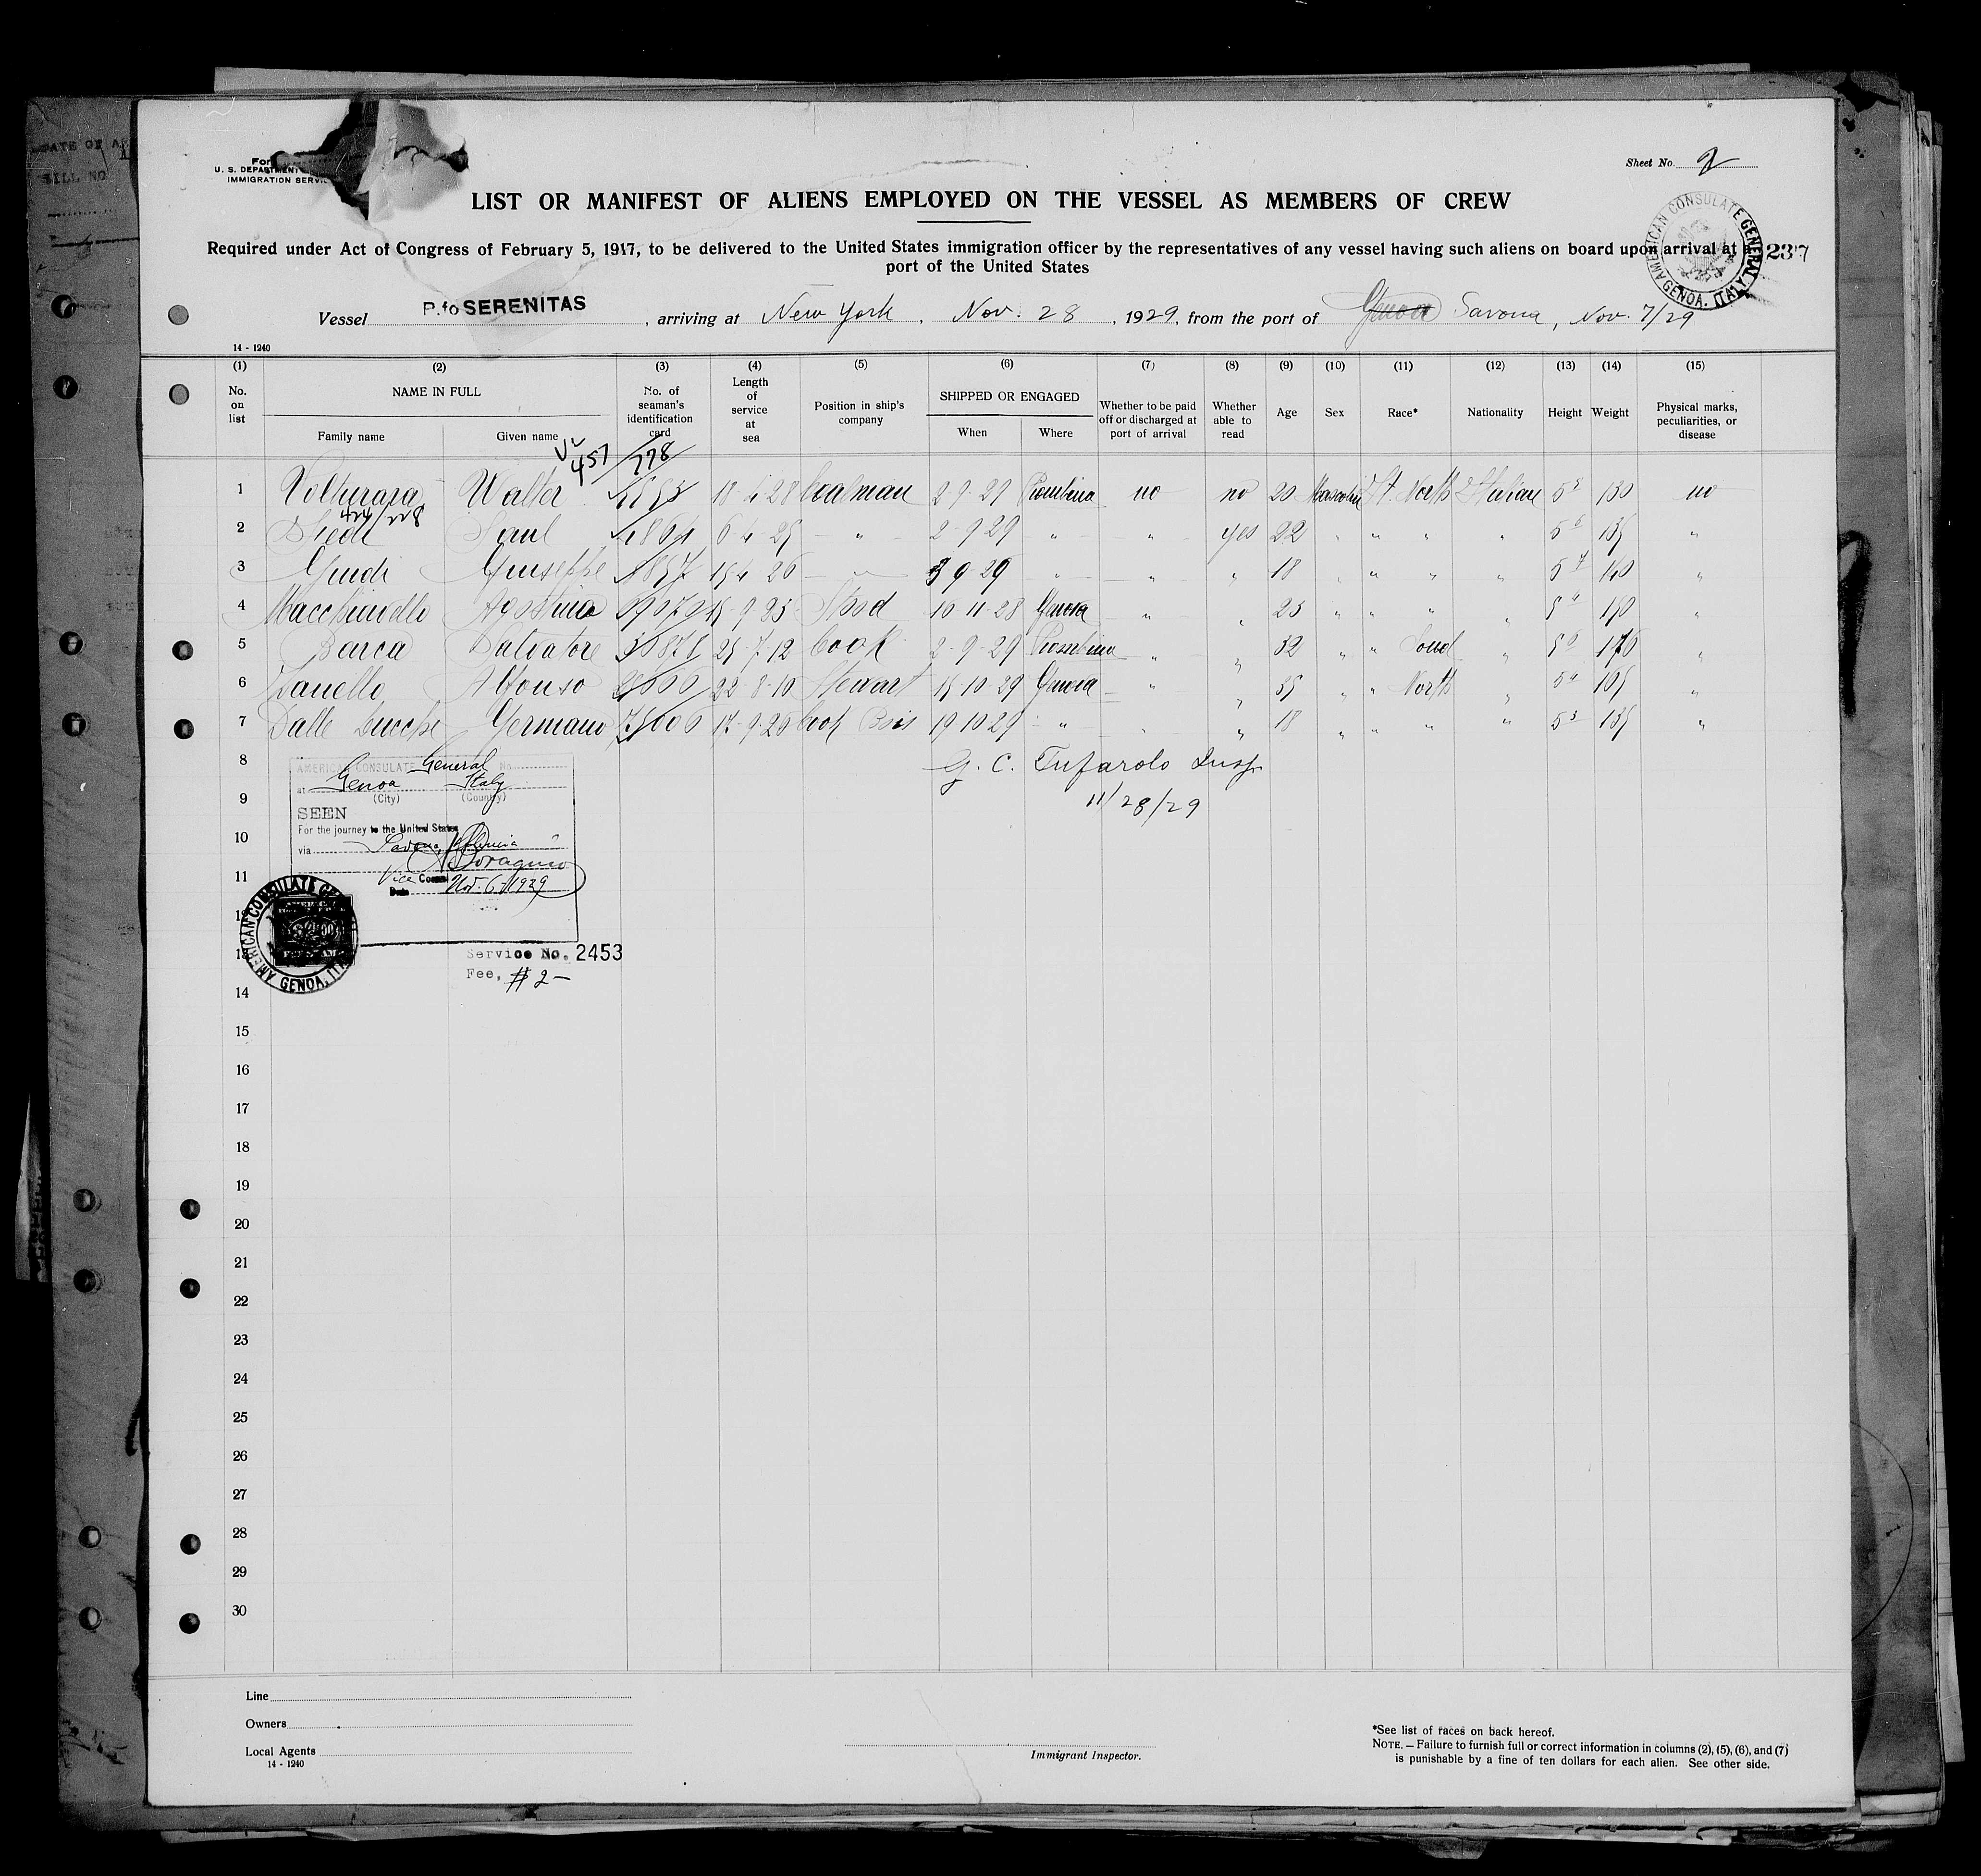 For
U. S. DEPARTMENT
IMMIGRATION SERVIC
Sheet No. 2
LIST OR MANIFEST OF ALIENS EMPLOYED ON THE VESSEL AS MEMBERS OF CREW
Required under Act of Congress of February 5, 1917, to be delivered to the United States immigration officer by the representatives of any vessel having such aliens on board upon arrival at a
port of the United States
AMERICAN CONSULATE GENERAL GENOA, ITALY
237
Vessel P.fo SERENITAS, arriving at New York, Nov. 28, 1929, from the port of Genoa Savona, Nov. 7/29
14 - 1240
(1) (2) (3) (4) (5) (6) (7) (8) (9) (10) (11) (12) (13) (14) (15)
No. on list NAME IN FULL Family name Given name No. of seaman's identification card Length of service at sea Position in ship's company SHIPPED OR ENGAGED When Where Whether to be paid off or discharged at port of arrival Whether able to read Age Sex Race* Nationality Height Weight Physical marks, peculiarities, or disease
457 778
1 Volturara Walter coalman 2-9-29 Piombino no no 20 It. North Italian 5 5 130 no
424/228
2 Saul 6 4 25 " 2-9 29 " " yes 22 " " " " 5 6 135 "
3 Guidi Giuseppe " 3 9 29 " " " 18 " " " " 5 7 140 "
4 Macchiavello Agostino 10 11-28 Genova " " 23 " " " " "
5 Barca Salvatore 25-7-12 Cook 2-9-29 Piombino " " 32 " " Soud " 5 6 170 "
6 Zanello Alfonso 22-8-10 Stewart 15 10-29 Genova " " 35 " " North " 165 "
7 Dalle Lucche Germano 17-9-26 Cook Bois 19 10 29 " " " 18 " " " " 5 5 135 "
8 G. C. Tufarolo Insp
9 11/28/29
10
11
12
13
14
15
16
17
18
19
20
21
22
23
24
25
26
27
28
29
30
AMERICAN CONSULATE General No.
at Genoa Italy
(City) (Country)
SEEN
For the journey to the United States
via Savona
Vice Consul
Date Nov. 6, 1929
AMERICAN CONSULATE GENERAL GENOA, ITALY
Service No. 2453
Fee, $2-
Line
Owners
Local Agents
14 - 1240
Immigrant Inspector.
*See list of races on back hereof.
NOTE. – Failure to furnish full or correct information in columns (2), (5), (6), and (7)
is punishable by a fine of ten dollars for each alien. See other side.